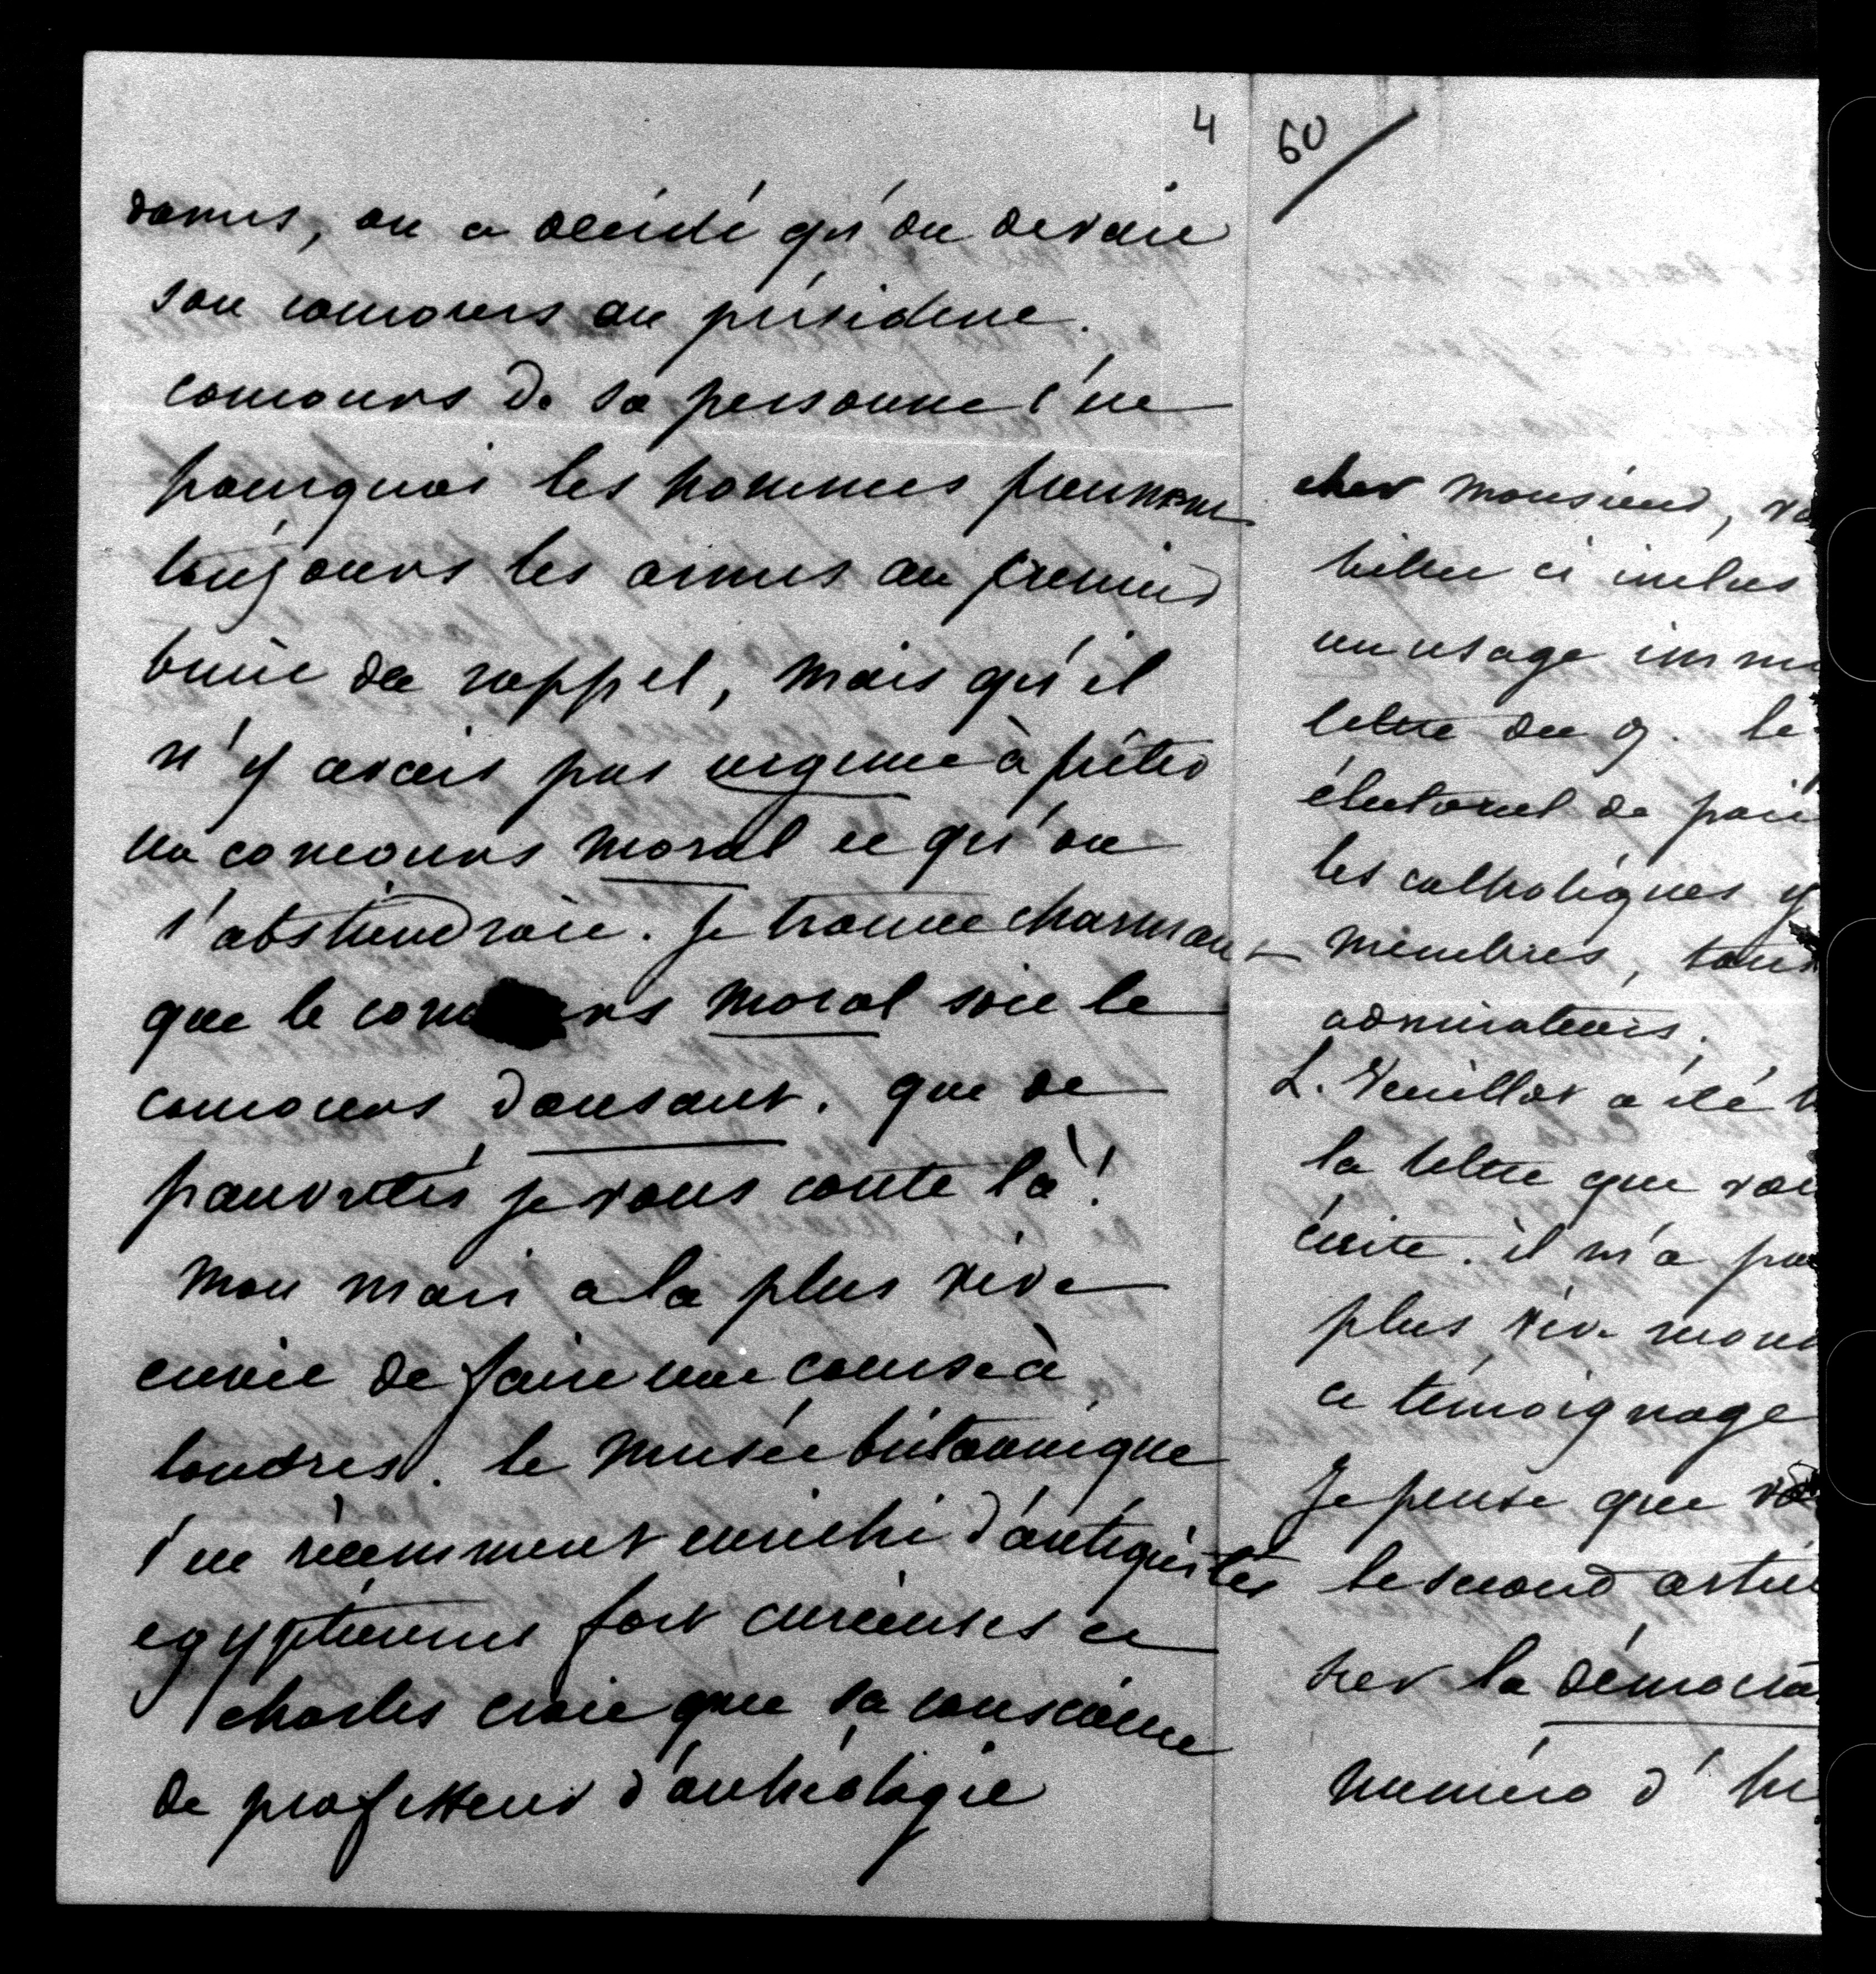 4
dames, on a décidé qu'on devait
son concours au président.
concours de sa personne c'est
pourquoi les hommes prennent
toujours les armes au premier
bruit du rappel, mais qu'il
n'y avait pas urgence à prêter
un concours moral et qu'on
s'abstiendroit. Je trouve charmant
que le concours moral soit le
concours dansant. que de
pauvretés je vous conte là!
Mon mari a la plus vive
envie de faire une course à
londres. le Musée britannique
s'est récemment enrichi d'antiquités
egyptiennes fort curieuses et
charles croit que sa conscience
de professeur d'archéologie
60
cher Monsieur, vo
billet ci inclus
un usage imm
lettre du g. le
électoral de
les catholiques y
Membres, tous
admirateurs.
L. Veuillot a été
la lettre que vou
écrite. il m'a
plus vive
ce témoignage
Je pense que vo
le second
sur la démocra
Numéro d'